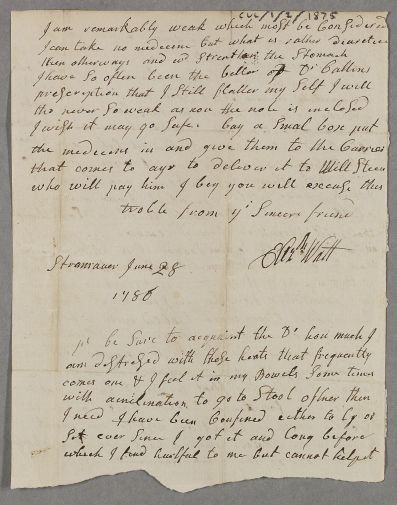 CUL/1/2/1875
I am remarkably weak which most be Considered
I can take no medecine but what is rather diuretick
then otherways and wd Strenthen the Stomach
I have so often been the better of Dr Cullens
preseription that I still flatter my Self I will
tho never So weak as now the note is inclosed
I wish it may go Safe. buy a Smal box put
the medecens in and give them to the Carrier
that comes to ayr to deliver it to Will Steen
who will pay him I beg you will excuse this
troble from yr Sincere friend
Watt
Stranraver June 28
1786
be Sure to acquaint the Dr hou much I
am destresed with those heats that frequently
comes one & I feel it in my Bowels Some times
with aniclination to go to Stool ofther then
I need I have been Confined either to ly or
Set ever Since I got it and long before
which I find hurtful to me but cannot help it